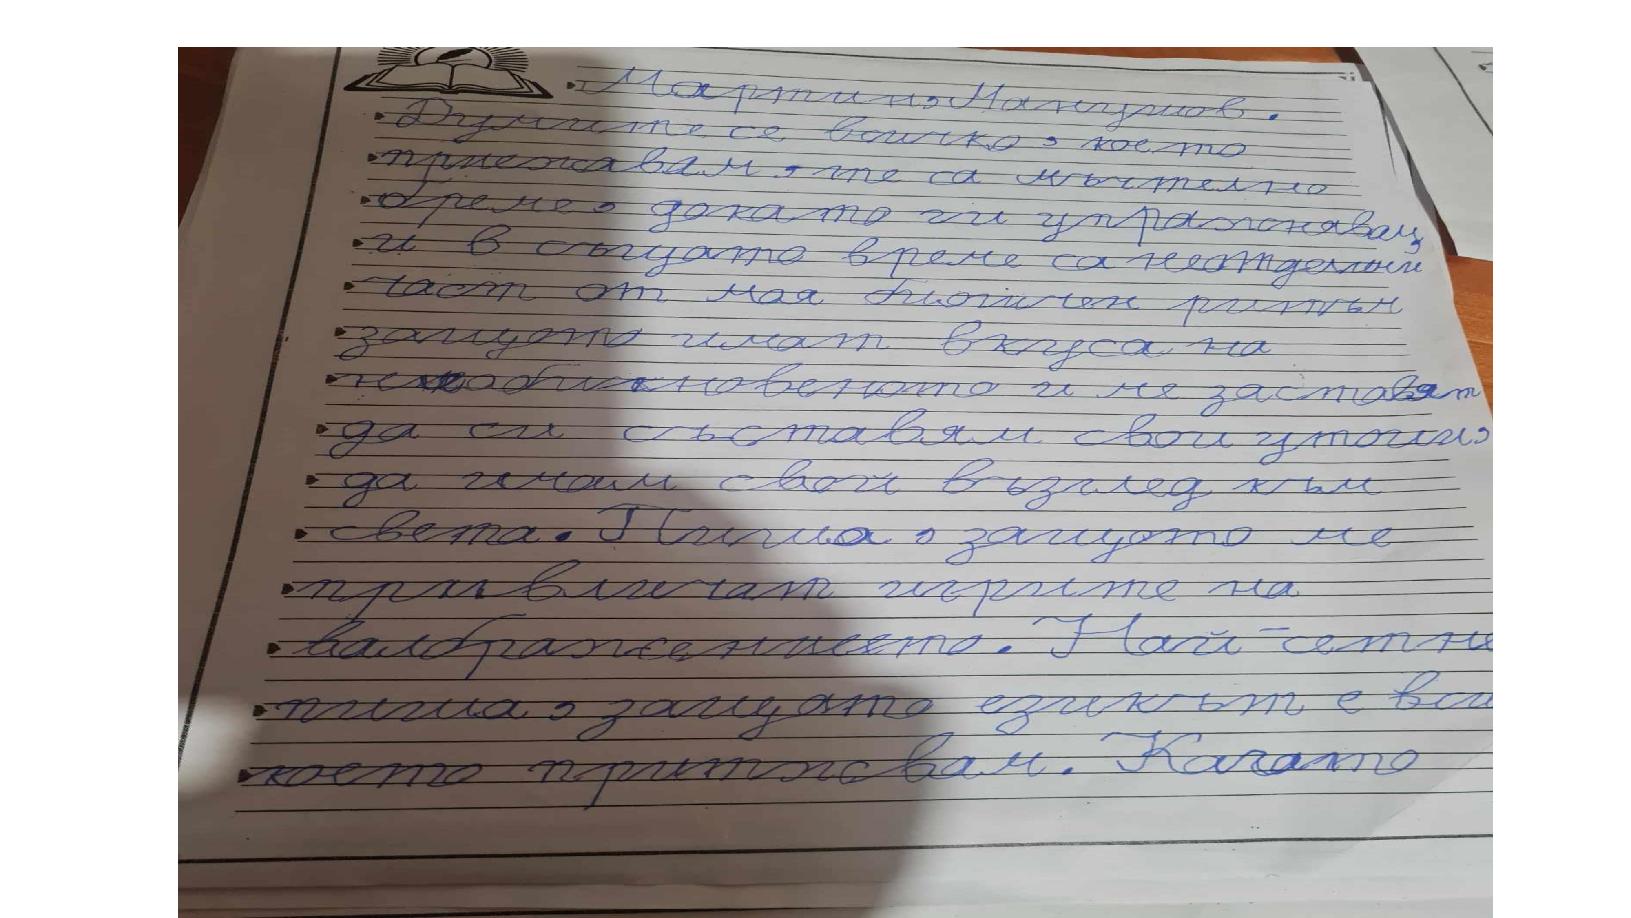 Мартин, Мангушов.
Думите се всичко, което
приежавам, те са мъчтелно
бреме, докато ги упражнявац,
и в същато време са неотделими
част от моя биогичен ритъм
защото имат вкуса на
необикновеното и ме заставят
да си съставям свои утопии,
да имам свои възглед към
света. Пиша, защото ме
привличат игрите на
валображението. Най-сетне
пиша, защото езикът е вси
което притжвам. Кагато